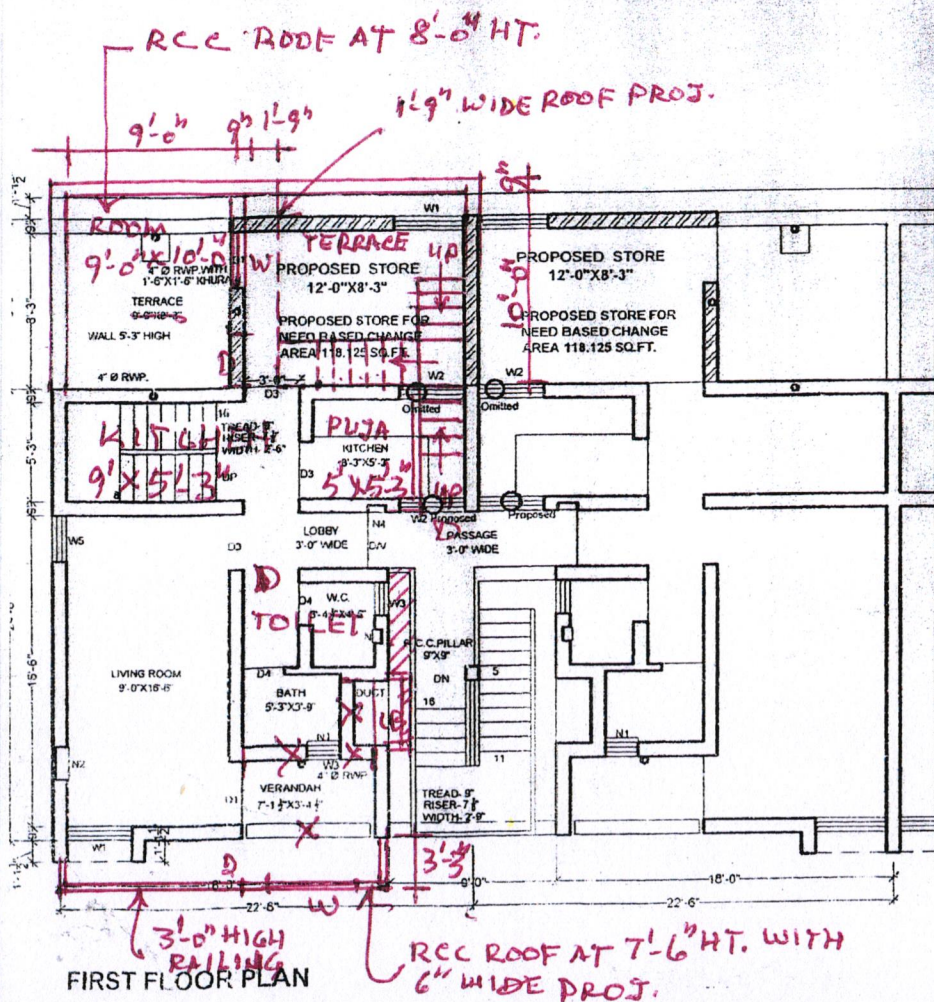 RCC ROOF AT 8'-0" HT.
1'-9" WIDE ROOF PROJ.
9'-0" 9" 1'-9"
9"
W1
ROOM
9'-0" X 10'-0"
4" Ø RWP. WITH
1'-6"X1'-6" KHURA
TERRACE
WALL 5'-3" HIGH
4" Ø RWP.
W
D
TERRACE
PROPOSED STORE
12'-0"X8'-3"
PROPOSED STORE FOR
NEED BASED CHANGE
AREA 118.125 SQ.FT.
UP
10'-0"
PROPOSED STORE
12'-0"X8'-3"
PROPOSED STORE FOR
NEED BASED CHANGE
AREA 118.125 SQ.FT.
8'-3"
3'-0"
D3
W2
W2
Omitted
Omitted
16
TREAD-9"
WIDTH-2'-6"
9' X 5'-3"
5'-3"
PUJA
KITCHEN
8'-3"X5'-3"
5' X 5'-3"
D3
UP
W2 Proposed
Proposed
W5
D3
LOBBY
3'-0" WIDE
N4
PASSAGE
3'-0" WIDE
D
TOILET
D4
W.C.
W3
R.C.C.PILLAR
9"X9"
DN
5
16
11
LIVING ROOM
9'-0"X16'-6"
D4
BATH
5'-3"X3'-9"
DUCT
N1
N1
N2
W3
4" Ø RWP
VERANDAH
7'-1½"X3'-4½"
D1
TREAD-9"
RISER-7½"
WIDTH-2'-9"
W1
D
W
3'-3"
18'-0"
22'-6"
22'-6"
3'-0" HIGH
RAILING
RCC ROOF AT 7'-6" HT. WITH
6" WIDE PROJ.
FIRST FLOOR PLAN